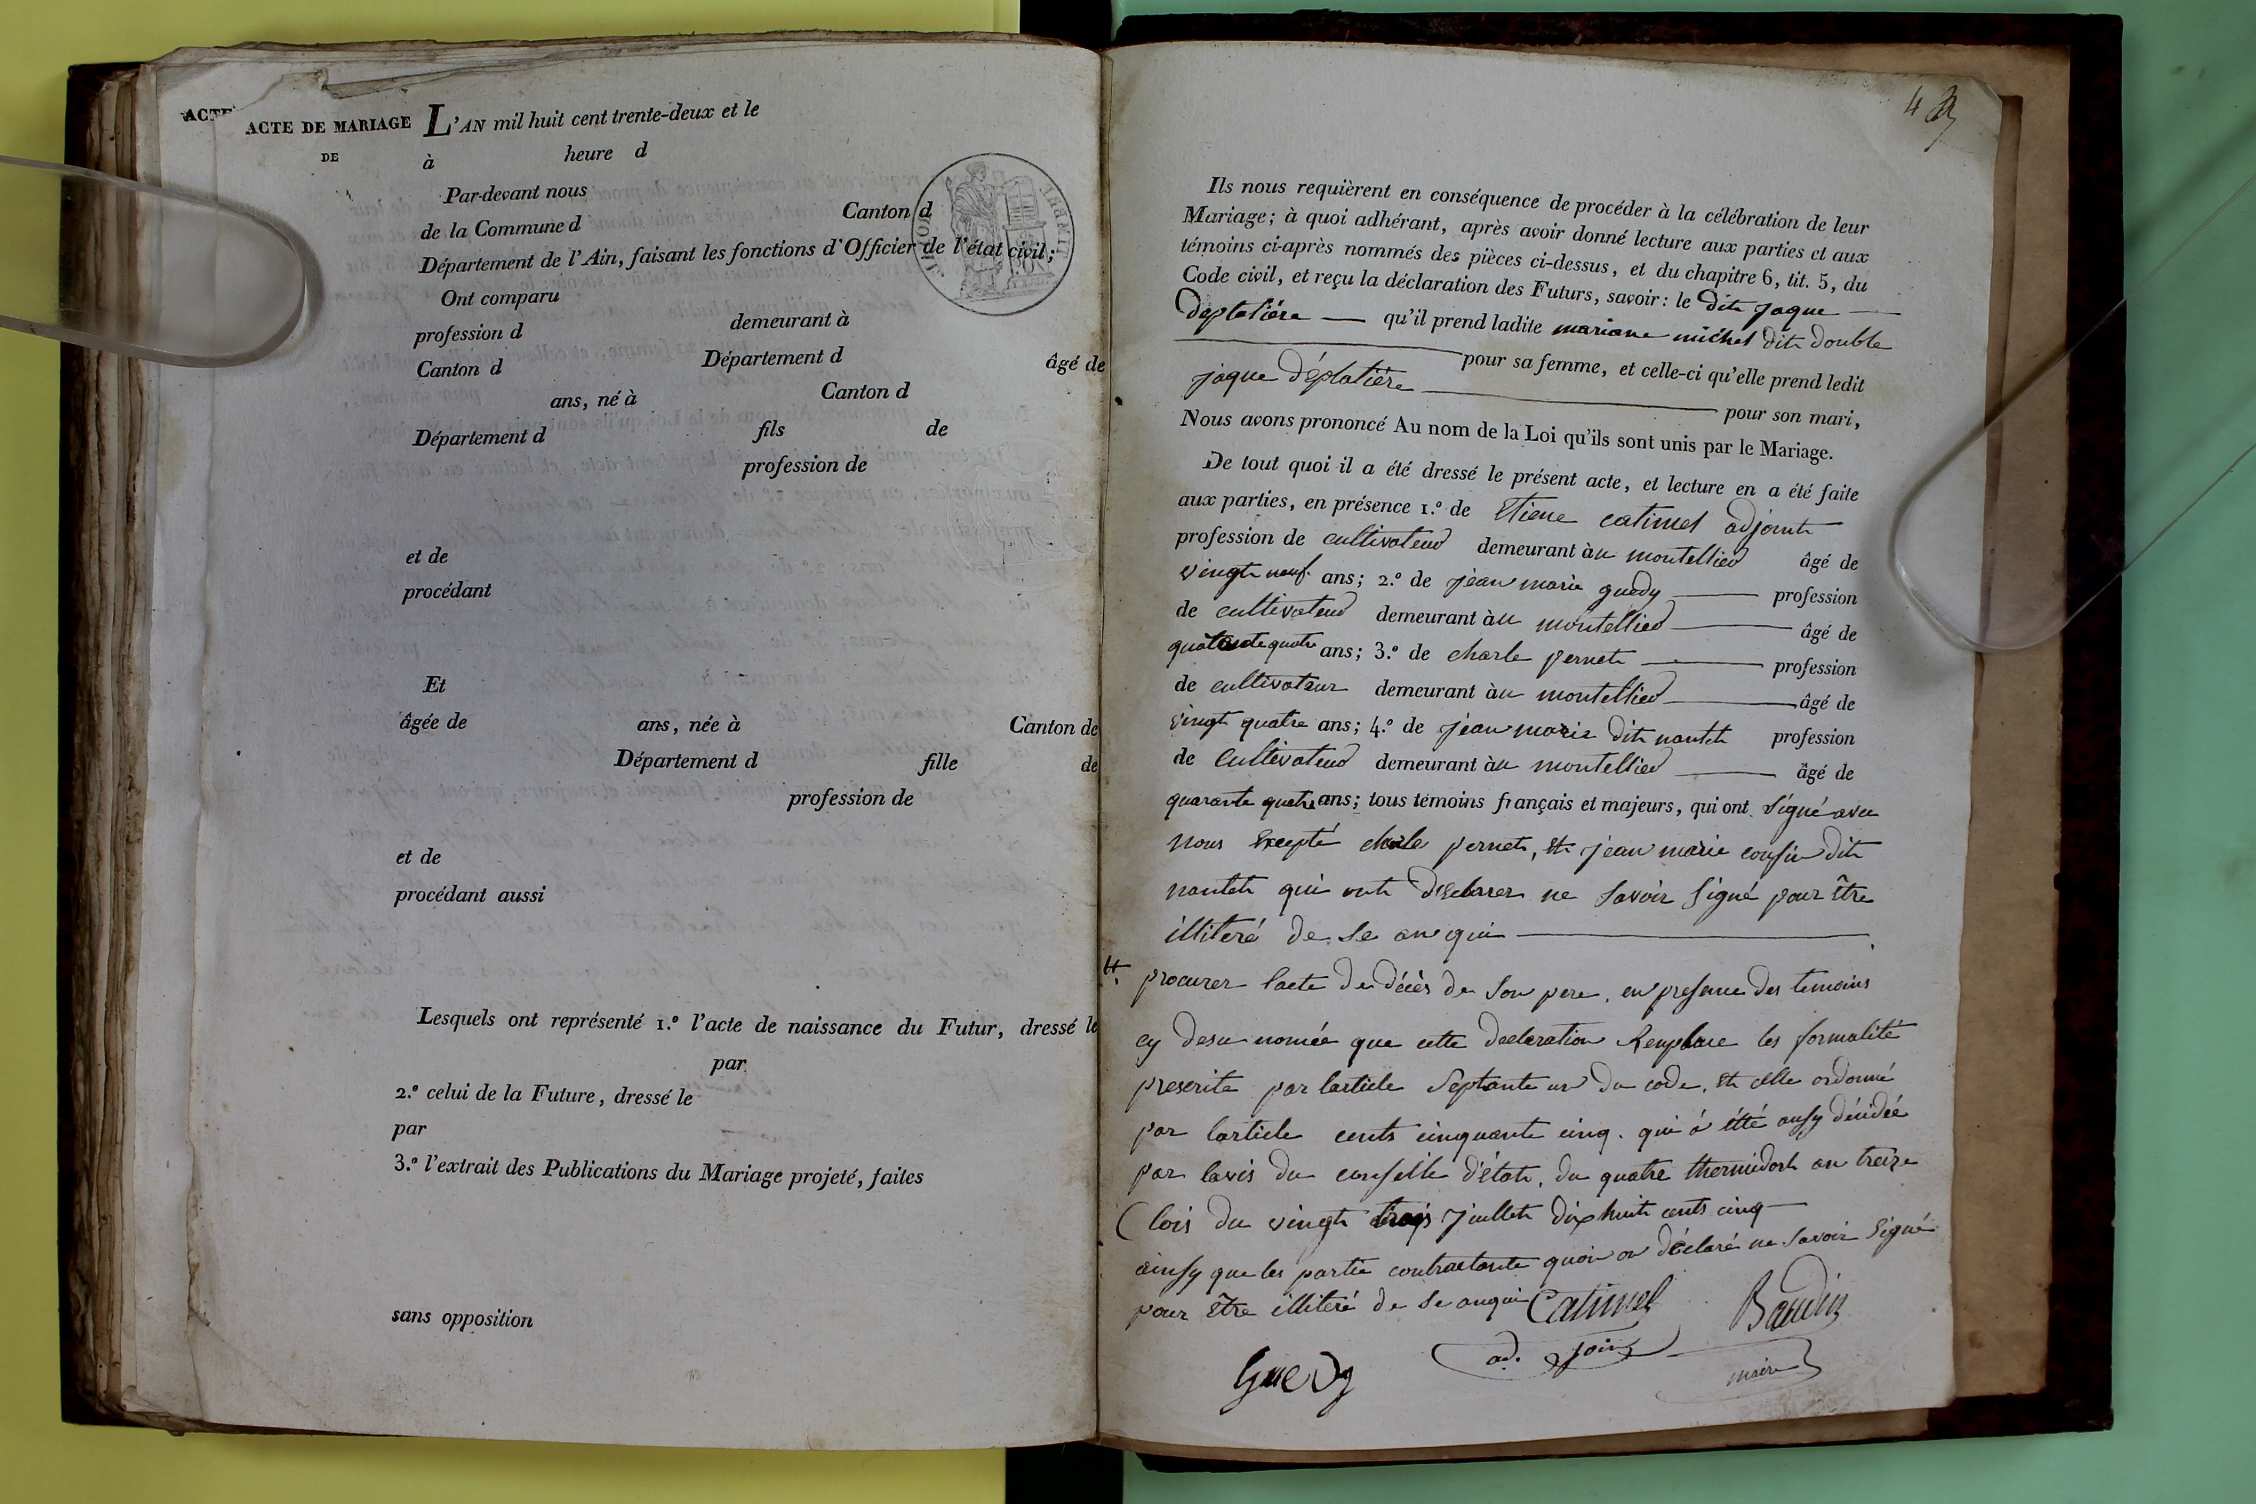 ACTE
ACTE DE MARIAGE L'AN mil huit cent trente-deux et le
DE à heure d
Par-devant nous
de la Commune d Canton d
Département de l'Ain, faisant les fonctions d'Officier de l'état civil;
Ont comparu
profession d demeurant à
Canton d Département d âgé de
ans, né à Canton d
Département d fils de
profession de
et de
procédant
Et
âgée de ans, née à Canton de
Département d fille de
profession de
et de
procédant aussi
Lesquels ont représenté 1.º l'acte de naissance du Futur, dressé le
par
2.º celui de la Future, dressé le
par
3.º l'extrait des Publications du Mariage projeté, faites
sans opposition
4
Ils nous requièrent en conséquence de procéder à la célébration de leur
Mariage; à quoi adhérant, après avoir donné lecture aux parties et aux
témoins ci-après nommés des pièces ci-dessus, et du chapitre 6, tit. 5, du
Code civil, et reçu la déclaration des Futurs, savoir: le dit jaque
deplatière qu'il prend ladite mariane michel dit double
pour sa femme, et celle-ci qu'elle prend ledit
jaque déplatière pour son mari,
Nous avons prononcé Au nom de la Loi qu'ils sont unis par le Mariage.
De tout quoi il a été dressé le présent acte, et lecture en a été faite
aux parties, en présence 1.º de Etiene catimel adjoint
profession de cultivateur demeurant àu montellier âgé de
vingt neuf ans; 2.º de jean marie guedy profession
de cultivateur demeurant àu montellier âgé de
quatante quatre ans; 3.º de charle pernet profession
de cultivateur demeurant àu montellier âgé de
vingt quatre ans; 4.º de jean marie dit nantet profession
de cultivateur demeurant àu montellier âgé de
quarante quatre ans; tous témoins français et majeurs, qui ont signé avec
nous excepté charle pernet, et jean marie cousin dit
nantet qui ont declarer ne savoir signé pour être
illiteré de se anquis
procurer lacte de décès de son pere, en presence des temoins
cy desu nomée que cette declaration Remplace les formalité
prescrite par larticle septante un du code, et celle ordonné
par larticle cents cinquante cinq. qui à été ausy décidée
par lavis du conseille d'état, du quatre thermidort an treize
(lois du vingt trois juillet dix huit cents cinq
ainsy que les partie contractante quoi on déclaré ne savoir signé
pour être illiteré de se anquis Catimel Baudin
ad. join maire
Guedy